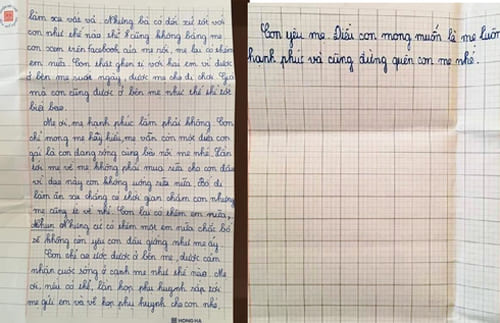 làm xu vất vả. Nhưng bà có đối xử tốt với
con như thế nào thì cũng không bằng mẹ.
con xem trên facebook của mẹ nói, mẹ lại có thêm
em nữa. Con thật ghen tị với hai em vì được
ở bên mẹ suốt ngày, được mẹ cho đi chơi. Giá
mà con cũng được ở bên mẹ như thế thì tốt
biết bao.
Mẹ ơi, mẹ hạnh phúc lắm phải không. Con
chỉ mong mẹ hãy hiểu, mẹ vẫn còn một đứa con
gái là con đang sống cùng bà nội mẹ nhé. Lần
tới mẹ về mẹ không phải mua sữa cho con đâu
vì dạo này con không uống sữa nữa. Bố đi
làm ăn xa chẳng có thời gian chăm con nhưng
mẹ cũng ít về nhỉ. Con lại có thêm em nữa,
Nhưng cứ có thêm một em nữa chắc bố
sẽ không còn yêu con đâu giống như mẹ ấy.
Con chỉ ao ước được ở bên mẹ, được cảm
nhận cuộc sống ở cạnh mẹ như thế nào. Mẹ
ơi, nếu có thể, lần họp phụ huynh sắp tới
mẹ gửi em và về họp phụ huynh cho con nhé.
HONG HA
Con yêu mẹ. Điều con mong muốn là mẹ luôn
hạnh phúc và cũng đừng quên con mẹ nhé.